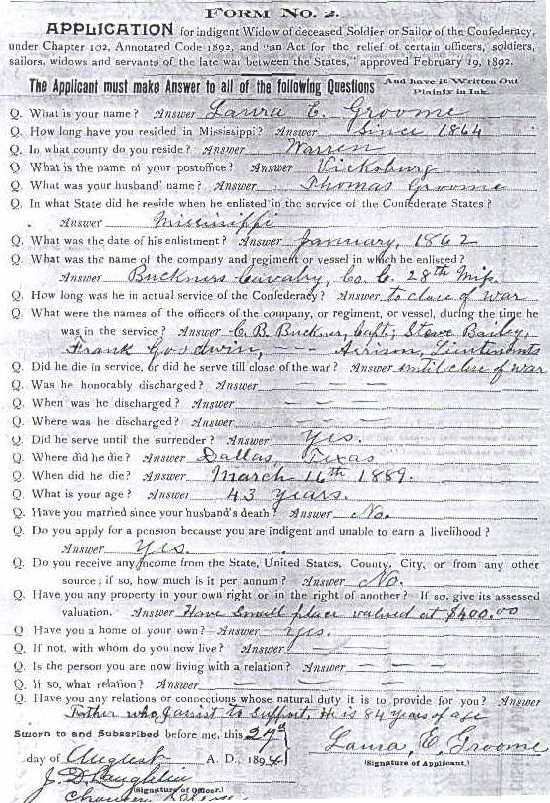 FORM NO. 2.
APPLICATION for indigent Widow of deceased Soldier or Sailor of the Confederacy,
under Chapter 102, Annotated Code 1892, and "an Act for the relief of certain officers, soldiers,
sailors, widows and servants of the late war between the States," approved February 19, 1892.
The Applicant must make Answer to all of the following Questions And have it Written Out Plainly in Ink.
Q. What is your name? Answer Laura E. Groome
Q. How long have you resided in Mississippi? Answer Since 1864
Q. In what county do you reside? Answer Warren
Q. What is the name of your postoffice? Answer Vicksburg
Q. What was your husband' name? Answer Thomas Groome
Q. In what State did he reside when he enlisted in the service of the Confederate States?
Answer Mississippi
Q. What was the date of his enlistment? Answer January, 1862
Q. What was the name of the company and regiment or vessel in which he enlisted?
Answer Buckners Cavalry, Co. C. 28th Miss.
Q. How long was he in actual service of the Confederacy? Answer to close of war
Q. What were the names of the officers of the company, or regiment, or vessel, during the time he
was in the service? Answer C. B. Buckner, Capt; Steve Bailey,
Frank Goodwin, — — Lieutenants
Q. Did he die in service, or did he serve till close of the war? Answer until close of war
Q. Was he honorably discharged? Answer — — —
Q. When was he discharged? Answer — — —
Q. Where was he discharged? Answer — — —
Q. Did he serve until the surrender? Answer Yes.
Q. Where did he die? Answer Dallas, Texas
Q. When did he die? Answer March 16th 1889.
Q. What is your age? Answer 43 years.
Q. Have you married since your husband's death? Answer No.
Q. Do you apply for a pension because you are indigent and unable to earn a livelihood?
Answer Yes.
Q. Do you receive any income from the State, United States, County, City, or from any other
source; if so, how much is it per annum? Answer No.
Q. Have you any property in your own right or in the right of another? If so, give its assessed
valuation. Answer Have small place valued at $400.00
Q Have you a home of your own? Answer Yes.
Q. If not, with whom do you now live? Answer — — —
Q. Is the person you are now living with a relation? Answer — — —
Q. If so, what relation? Answer — — —
Q. Have you any relations or connections whose natural duty it is to provide for you? Answer
Father who I assist to support. He is 84 years of age
Sworn to and Subscribed before me, this 27th
day of August A. D., 1894
Laura, E, Groome
(Signature of Applicant.)
J. D. Laughlin
(Signature of Officer.)
Chancery